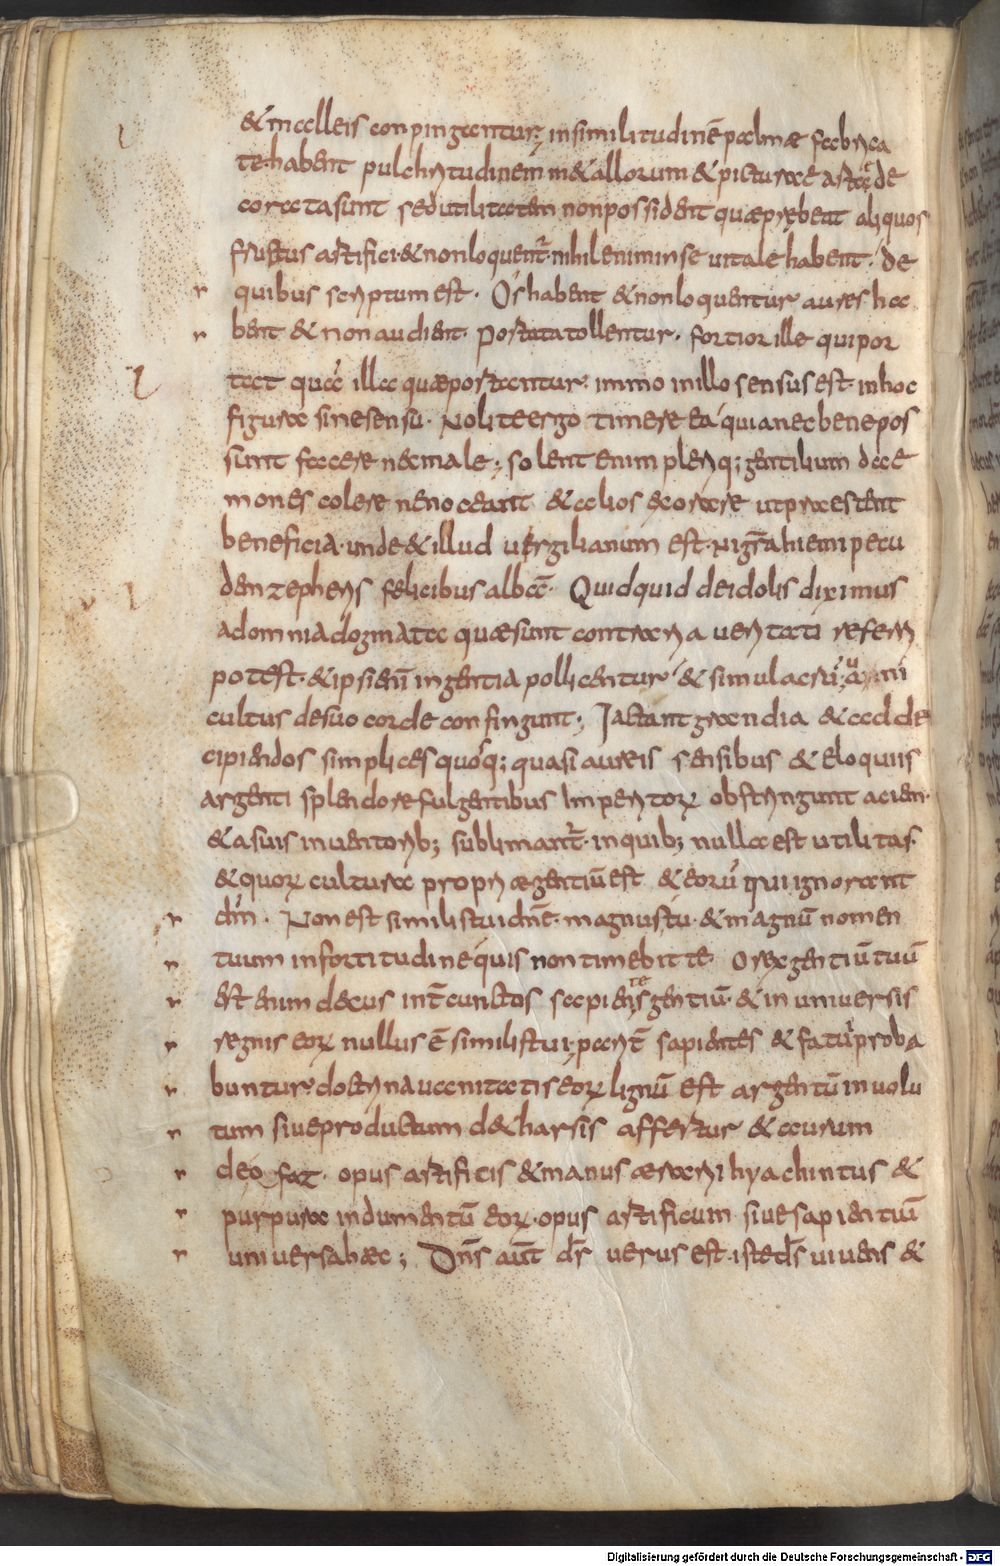 & malleis conpinguntur; in similitudinē palmae fabrica
te habent pulchritudinem metallorum & picturae arte de
coratasunt sed utilitatem nonpossident quaeprębeat aliquos
fructus artifici & nonloquent̄ nihileniminse uitale habent. de
quibus scriptum est. Os habent & nonloquentur aures ha
bent & nonaudient. Portata tollentur. fortior ille qui por
tat quā illa quaeportantur. immo inillo sensus est. inhoc
figura sinesensu. Nolite ergo timere ea quianec bene pos
sunt facere nec male; solent enim pleriq; gentilium dae
mones colere nenoceant & alios exorare utpraestent
beneficia. unde & illud uergilianum est. Nigrā hiemi pecu
den zepheris felicibus albā. Quidquid deidolis diximus
adomnia dogmata quaesunt contraria ueritati referri
potest. & ipsi enī ingentia pollicentur & simulacrū uani
cultus desuo corde confingunt; Jactant grandia & adde
cipiendos simplices quosq; quasi aureis sensibus & eloquiis
argenti splendore fulgentibus Imperitorꝝ obstringunt aciem.
& asuis inuentorib; sublimant̄. inquib; nulla est utilitas.
& quorꝝ cultura propriae gentiū est & eorū qui ignorant
dm̄. Non est similis tui dn̄e. magnus tu. & magnū nomen
tuum infortitudine quis non timebit te O rex gentiū tuū
est enim decus int̄ cunctos sapientes gentiū & in uniuersis
regnis eorꝝ nullus ē similis tui; parit̄ sapientes & fatui proba
buntur. doctrina uanitatis eorꝝ lignū est argentū inuolu
tum siueproductum de tharsis affertur & aurum
de ofaz. opus artificis & manus aerarii hyachintus &
purpura indumentū eorꝝ. opus artificum siue sapientiū
uniuersahaec; Dn̄s aut̄ ds̄ uerus est. iste ds̄ uiuens &
Digitalisierung gefördert durch die Deutsche Forschungsgemeinschaft - DFG